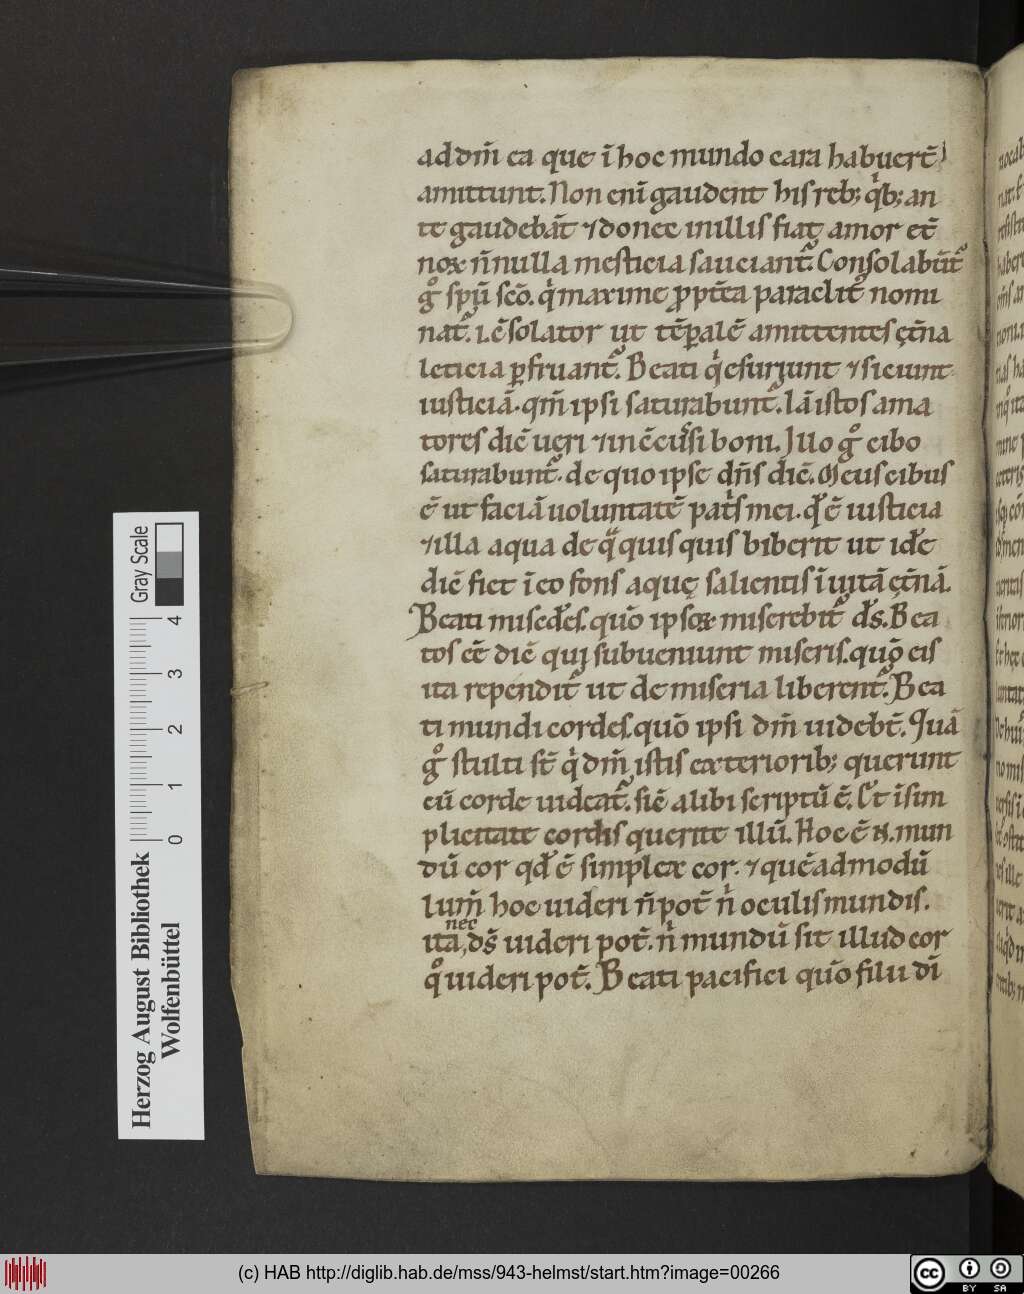 ad dm̄ ea que ī hoc mundo cara habuert̄
amittunt. Non enī gaudent his reb; qͥb; an
te gaudebāt ⁊ donec in illis fiat amor et̄
nox n̄ nulla mesticia sauciant᷑. Consolabūt᷑
gͦ spū sc̄o. qͥ maxime ꝓpt̄ea paraclit᷑ nomi
nat᷑. i. c̄solator ut tēꝑalē amittentes ęt̄na
leticia ꝑfruant᷑. Beati qͥ esuriunt ⁊ siciunt
iusticiā. qm̄ ipsi saturabunt᷑. Iā istos ama
tores diē ueri ⁊ inc̄cussi boni. Illo gͦ cibo
saturabunt᷑. de quo ipse dn̄s diē. Meus cibus
ē ut faciā uoluntatē patͥs mei. qd̄ ē iusticia
⁊ illa aqua de qͣ quisquis biberit ut idē
diē fiet ī eo fons aquę salientis ī uitā ęt̄nā.
Beati misc̄des. quō ipsoꝝ miserebit᷑ ds̄. Bea
tos ēē diē qui subueniunt miseris. quō eis
ita rependit᷑ ut de miseria liberent᷑. Bea
ti mundi cordes. quō ipsi dm̄ uidebt̄. Quā
gͦ stulti st̄ qͥ dm̄ istis exteriorib; querunt
cū corde uideat᷑. sic̄ alibi scriptū ē. Et ī sim
plicitate cordis querite illū. Hoc ē n̄. mun
dū cor qd̄ ē simplex cor. ⁊ quēadmodū
lum̄ hoc uideri n̄ pot̄ nͥ oculis mundis.
nec
ita, ds̄ uideri pot̄. nͥ mundū sit illud cor
qͦ uideri pot̄. Beati pacifici quō filii dī
Gray Scale
4
3
2
1
0
Herzog August Bibliothek
Wolfenbüttel
(c) HAB http://diglib.hab.de/mss/943-helmst/start.htm?image=00266
cc BY SA